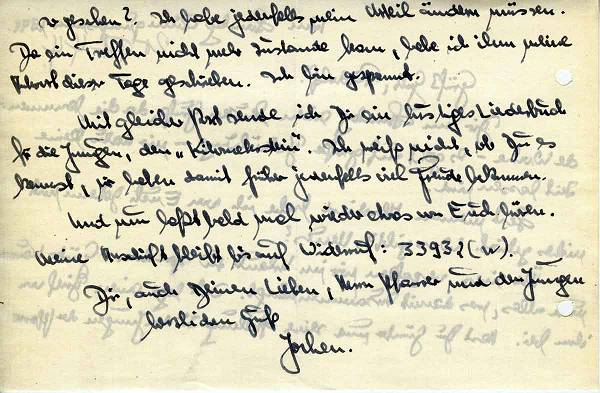 v gesehen? Ich habe jedenfalls mein Urteil ändern müssen.
Da ein Treffen nicht mehr zustande kam, habe ich ihm meine
Antwort dieser Tage geschrieben. Ich bin gespannt.
Mit gleicher Post sende ich Dir ein lustiges Liederbuch
für die Jungen, den „Kilometerstein". Ich weiß nicht, ob Du es
kennst, wir haben damit früher jedenfalls viel Freude bekommen.
Und nun laßt bald mal wieder etwas von Euch hören.
Meine Anschrift bleibt bis auf Widerruf: 33932 (W).
Dir, auch Deinen Lieben, Herrn Pfarrer und den Jungen
herzlichen Gruß
Jochen.